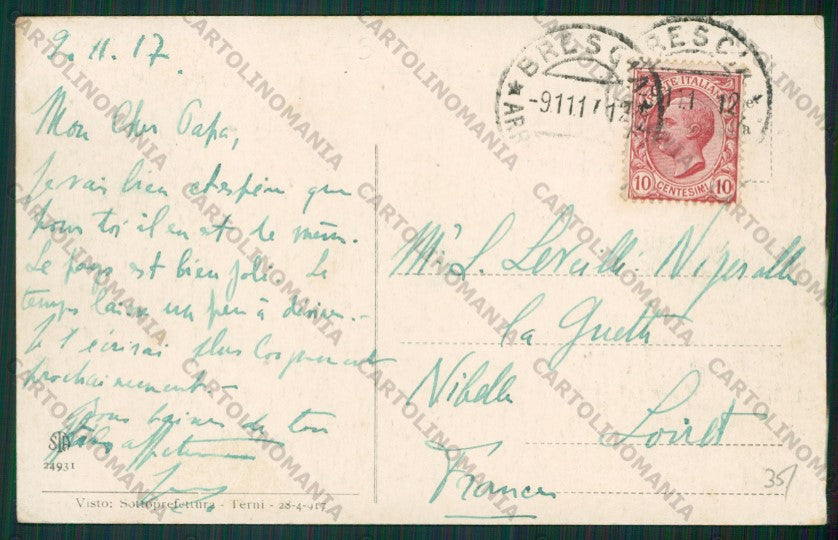 9.11.17.
Mon Cher Papa,
Je vais bien et espère que
pour toi il en est de même.
Le pays est bien joli. Le
temps laisse un peu à désirer.-
Je t'écrirai plus longuement
prochainement.-
Bons baisers de ton
STA
24931
Visto: Sottoprefettura - Terni - 28-4-917
BRESCIA
-9.11.17
12
BRESCIA
12
POSTE ITALIANE
10 CENTESIMI 10
Mr L.
La
Nibelle
Loiret
France
35
CARTOLINOMANIA